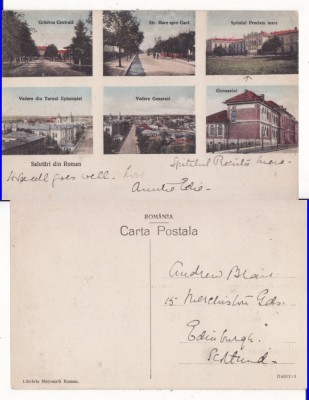 Grădina Centrală
Str. Mare spre Gară
Spitalul Precista mare
Vedere din Turnul Episcopiei
Vedere Generală
Gimnaziul
Salutări din Roman
Spitalul Precista mare.
goes well. Love
Auntie Edie.
ROMÂNIA
Carta Postala
Andrew Blair
15 Merchiston Gdns.
Edinburgh.
Scotland.
Librăria Maymară Roman.